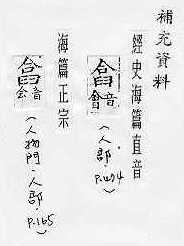 補充資料
經史海篇直音
音會
(人部·
海篇正宗
音会
(人物門·人部·P.165)